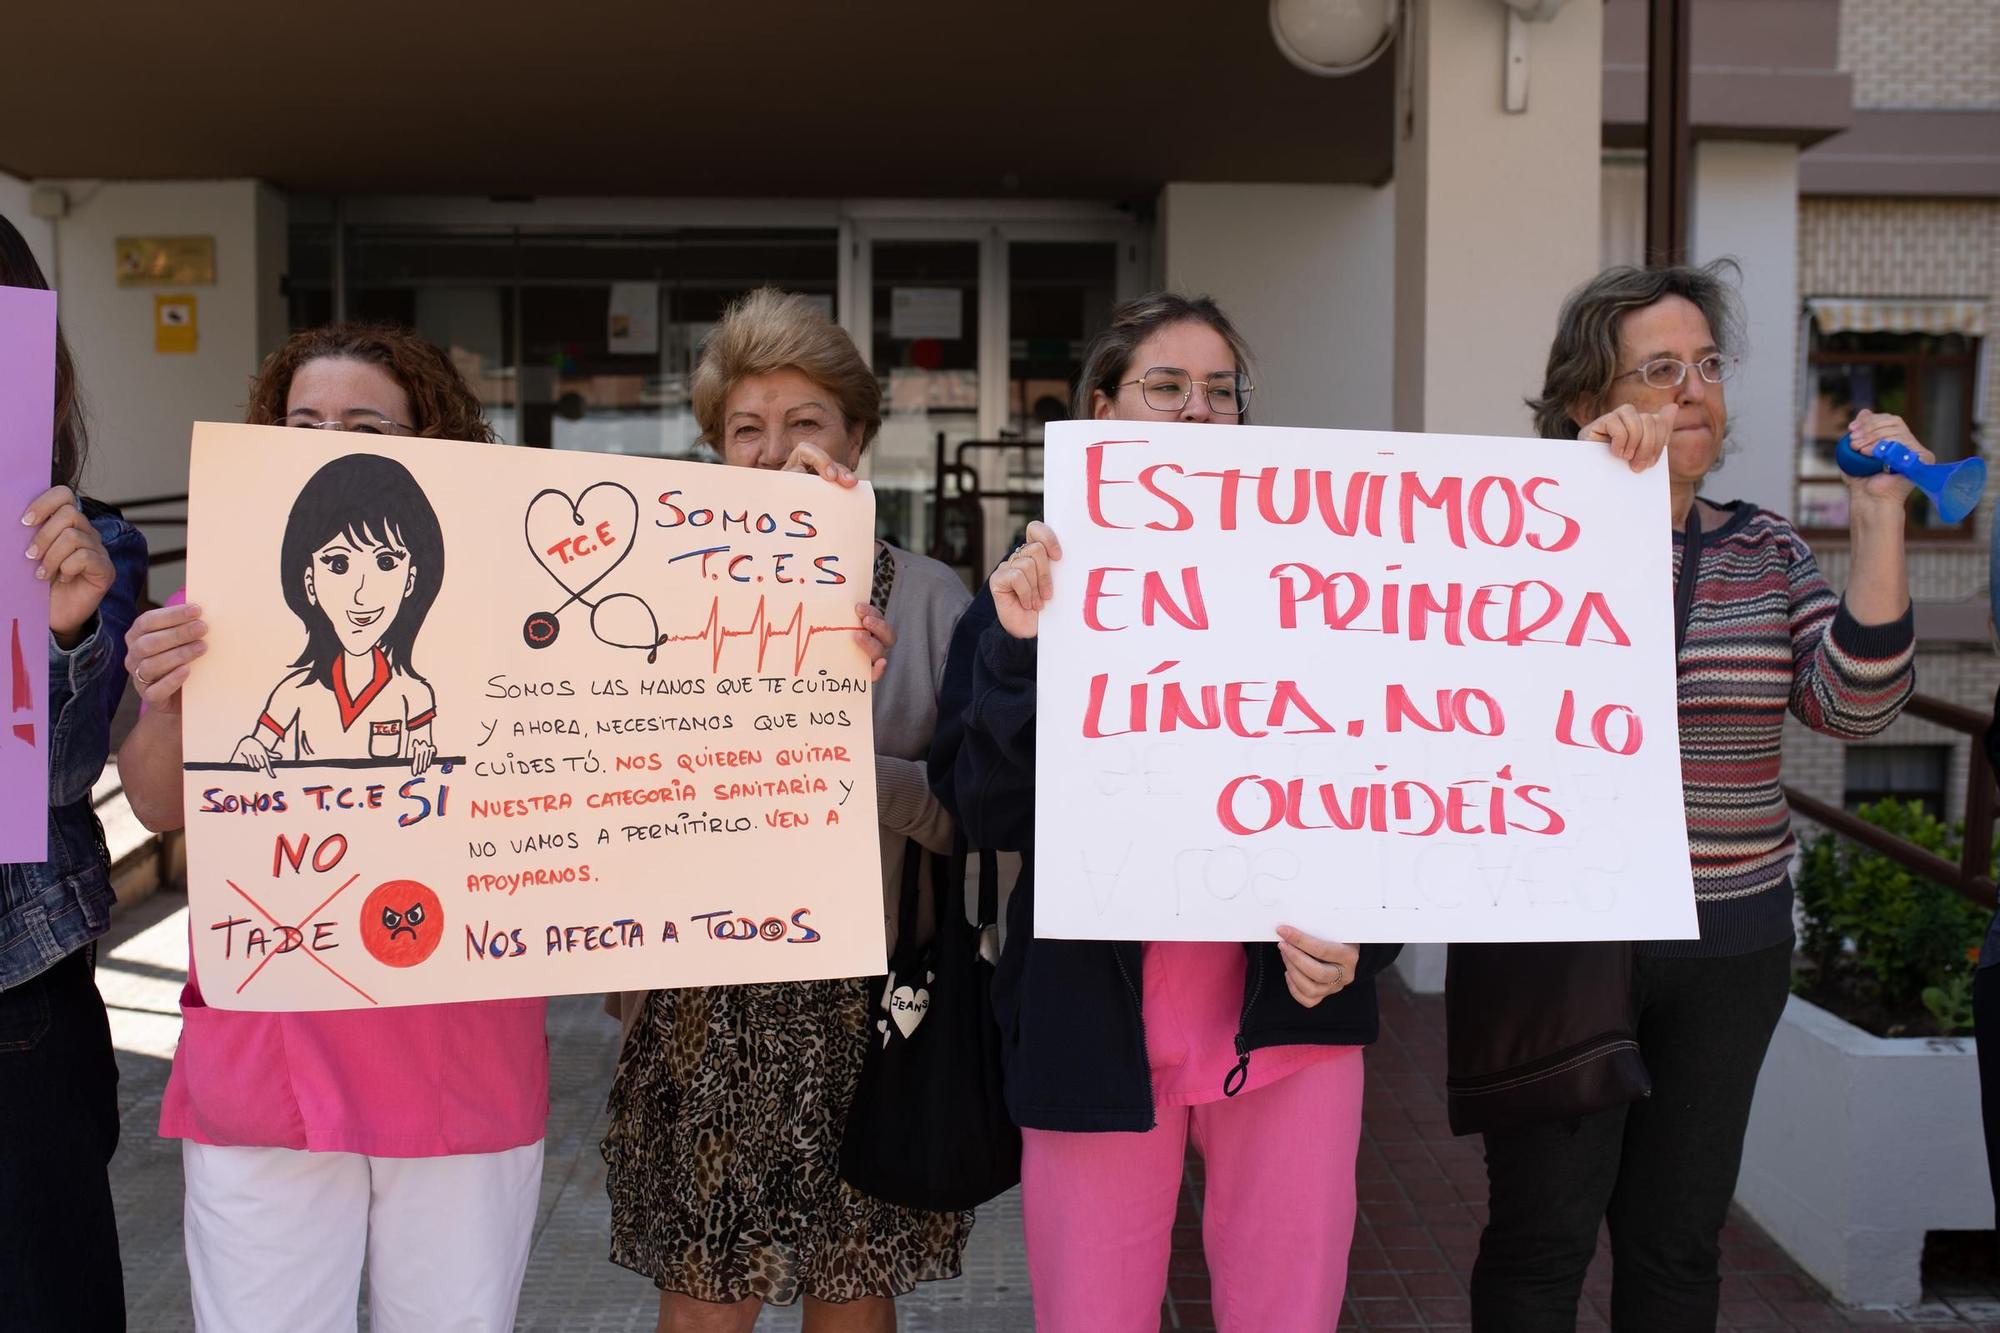 T.C.E
SOMOS
T.C.E.S
T.C.E
SOMOS LAS MANOS QUE TE CUIDAN
Y AHORA, NECESITAMOS QUE NOS
CUIDES TÚ. NOS QUIEREN QUITAR
NUESTRA CATEGORÍA SANITARIA Y
NO VAMOS A PERMITIRLO. VEN A
APOYARNOS.
SOMOS T.C.E SI
NO
TADE
NOS AFECTA A TODOS
ESTUVIMOS
EN PRIMERA
LÍNEA. NO LO
OLVIDEÍS
JEANS